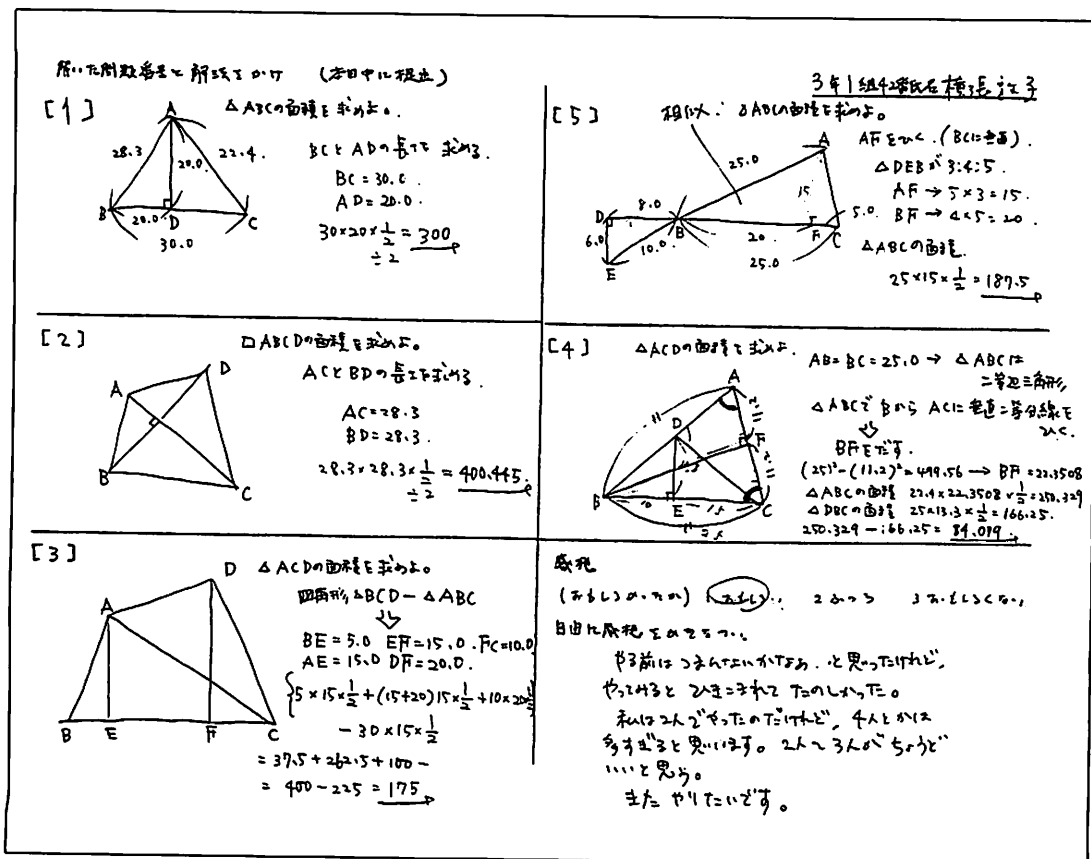 解いた問題番号と解法をかけ (本日中に提出)
3年1組42番氏名
[1] △ABCの面積を求めよ。
A
28.3 20.0 22.4
B 20.0 D C
30.0
BCとADの長さを求める.
BC=30.0
AD=20.0.
30×20×1/2=300
÷2
[2] □ABCDの面積を求めよ。
A D
B C
ACとBDの長さを求める.
AC=28.3
BD=28.3.
28.3×28.3×1/2=400.445
÷2
[3] △ACDの面積を求めよ。
A D
B E F C
四角形ABCD-△ABC
⇩
BE=5.0 EF=15.0.FC=10.0
AE=15.0 DF=20.0.
{5×15×1/2+(15+20)15×1/2+10×20×1/2}
-30×15×1/2
=37.5+262.5+100-
=400-225=175
[5] 相似. △ABCの面積を求めよ。
A
25.0
15
D 8.0 B F 5.0 C
6.0 10.0 20
E 25.0
AFをひく.(BCに垂直).
△DEBが3:4:5.
AF→5×3=15.
BF→4×5=20
△ABCの面積.
25×15×1/2=187.5
[4] △ACDの面積を求めよ.
A
D
F
B 10 E 15 C
11.2
11.2
AB=BC=25.0→△ABCは
二等辺三角形
△ABCでBからACに垂直二等分線を
ひく.
⇩
BFをだす.
(25)²-(11.2)²=499.56→BF=22.3508
△ABCの面積 22.4×22.3508×1/2=250.329
△DBCの面積 25×13.3×1/2=166.25.
250.329-166.25=84.079
感想
(おもしろかったか) 1おもしろい 2ふつう 3おもしろくない
自由に感想をかきなさい.
やる前はつまんないかなあ.と思ったけれど,
やってみるとひきこまれてたのしかった。
私は2人でやったのだけれど,4人とかは
多すぎると思います。2人〜3人がちょうど
いいと思う。
またやりたいです。